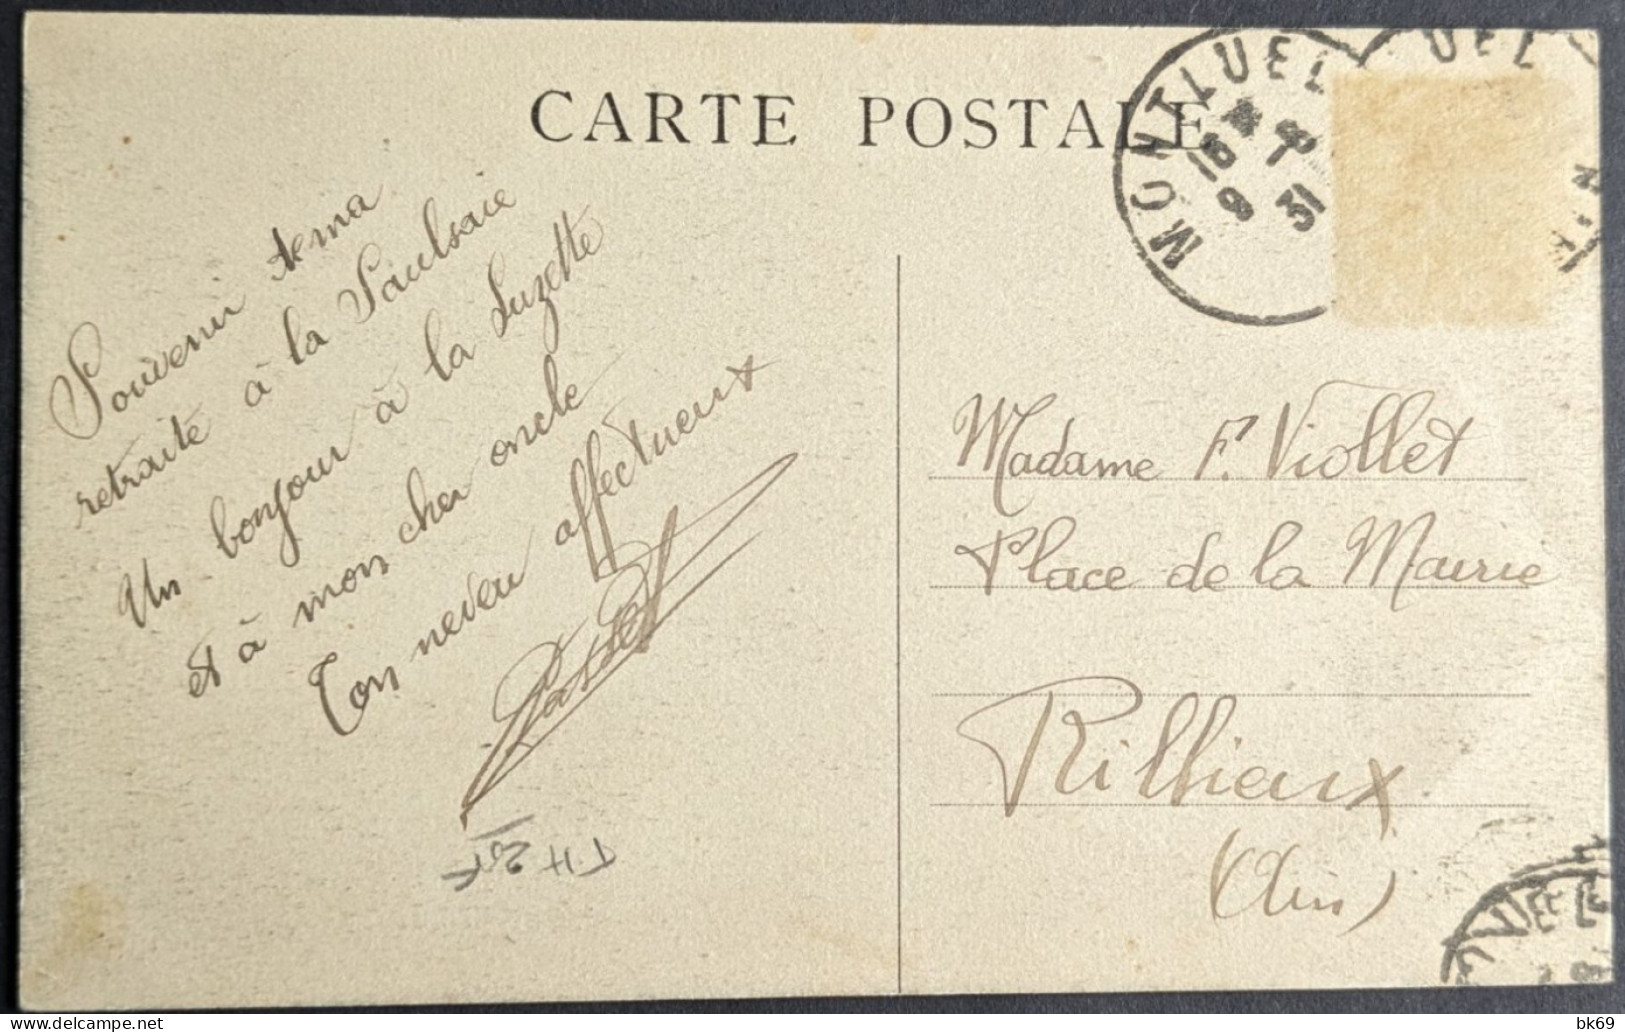 CARTE POSTALE
MONTLUEL
UEL
18 * 8
9 31
Souvenir de ma
retraite à la Saulsaie
Un bonjour à la Suzette
et à mon cher oncle
Ton neveu affectueux
Madame F. Viollet
Place de la Mairie
Rillieux
(Ain)
bk69